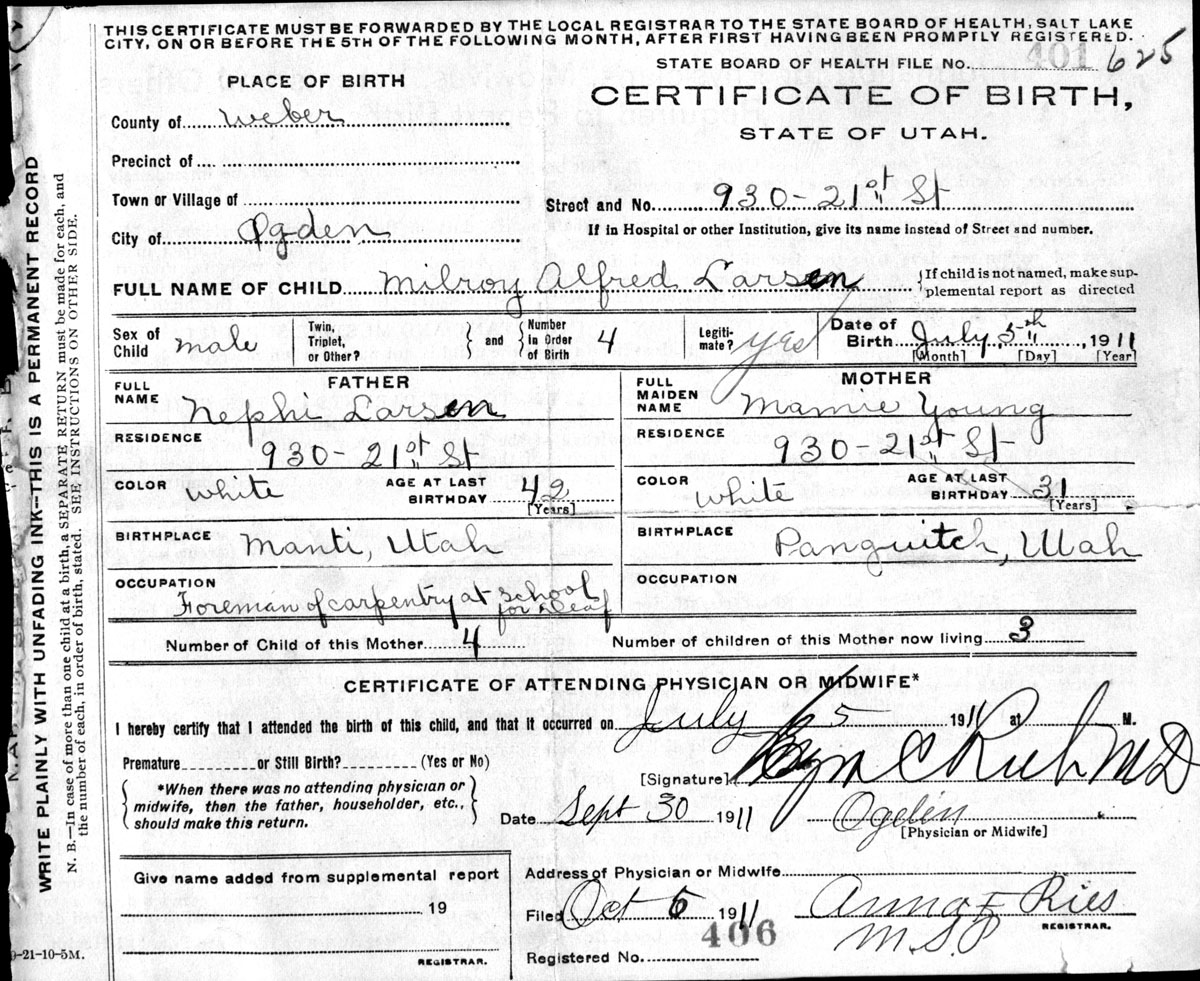 THIS CERTIFICATE MUST BE FORWARDED BY THE LOCAL REGISTRAR TO THE STATE BOARD OF HEALTH, SALT LAKE
CITY, ON OR BEFORE THE 5TH OF THE FOLLOWING MONTH, AFTER FIRST HAVING BEEN PROMPTLY REGISTERED.
STATE BOARD OF HEALTH FILE No. 401 625
PLACE OF BIRTH
CERTIFICATE OF BIRTH,
STATE OF UTAH.
County of Weber
Precinct of
Town or Village of
Street and No. 930 - 21st St
City of Ogden
If in Hospital or other Institution, give its name instead of Street and number.
FULL NAME OF CHILD Milroy Alfred Larsen
If child is not named, make supplemental report as directed
Sex of Child male
Twin, Triplet, or Other?
and
Number in Order of Birth 4
Legitimate? yes
Date of Birth July 5th, 1911
[Month] [Day] [Year]
FATHER
FULL NAME Nephi Larsen
RESIDENCE 930 - 21st St
COLOR white AGE AT LAST BIRTHDAY 42
[Years]
BIRTHPLACE Manti, Utah
OCCUPATION
Foreman of carpentry at school for Deaf
MOTHER
FULL MAIDEN NAME Mamie Young
RESIDENCE 930 - 21st St
COLOR white AGE AT LAST BIRTHDAY 31
[Years]
BIRTHPLACE Panguitch, Utah
OCCUPATION
Number of Child of this Mother 4 Number of children of this Mother now living 3
CERTIFICATE OF ATTENDING PHYSICIAN OR MIDWIFE*
I hereby certify that I attended the birth of this child, and that it occurred on July 5 1911 at M.
Premature or Still Birth? (Yes or No)
[Signature] C Rich MD
*When there was no attending physician or
midwife, then the father, householder, etc.,
should make this return.
Date Sept 30 1911 Ogden
[Physician or Midwife]
Give name added from supplemental report
19
REGISTRAR.
Address of Physician or Midwife
Filed Oct 6 1911 Anna F Ries
REGISTRAR.
406
Registered No.
9-21-10-5M.
WRITE PLAINLY WITH UNFADING INK—THIS IS A PERMANENT RECORD
N. B.—In case of more than one child at a birth, a SEPARATE RETURN must be made for each, and
the number of each, in order of birth, stated. SEE INSTRUCTIONS ON OTHER SIDE.